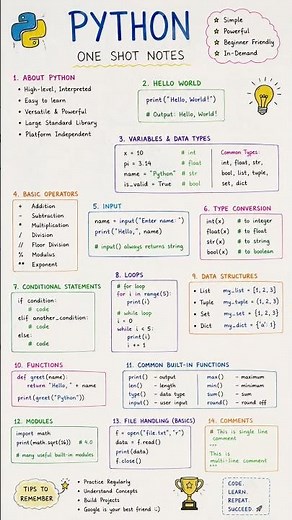 PYTHON
ONE SHOT NOTES
☆ Simple
☆ Powerful
☆ Beginner Friendly
☆ In-Demand
1. ABOUT PYTHON
• High-level, Interpreted
• Easy to learn
• Versatile & Powerful
• Large Standard Library
• Platform Independent
2. HELLO WORLD
print("Hello, World!")
# Output: Hello, World!
3. VARIABLES & DATA TYPES
x = 10 # int
pi = 3.14 # float
name = "Python" # str
is_valid = True # bool
Common Types:
int, float, str,
bool, list, tuple,
set, dict
4. BASIC OPERATORS
+ Addition
- Subtraction
* Multiplication
/ Division
// Floor Division
% Modulus
** Exponent
5. INPUT
name = input("Enter name: ")
print("Hello,", name)
# input() always returns string
6. TYPE CONVERSION
int(x) # to integer
float(x) # to float
str(x) # to string
bool(x) # to boolean
7. CONDITIONAL STATEMENTS
if condition:
# code
elif another_condition:
# code
else:
# code
8. LOOPS
# for loop
for i in range(5):
print(i)
# while loop
i = 0
while i < 5:
print(i)
i += 1
9. DATA STRUCTURES
• List my_list = [1, 2, 3]
• Tuple my_tuple = (1, 2, 3)
• Set my_set = {1, 2, 3}
• Dict my_dict = {'a': 1}
10. FUNCTIONS
def greet(name):
return "Hello, " + name
print(greet("Python"))
11. COMMON BUILT-IN FUNCTIONS
print() - output
len() - length
type() - data type
input() - user input
max() - maximum
min() - minimum
sum() - sum
round() - round off
12. MODULES
import math
print(math.sqrt(16)) # 4.0
# many useful built-in modules
13. FILE HANDLING (BASICS)
f = open("file.txt", "r")
data = f.read()
print(data)
f.close()
14. COMMENTS
# This is single line
comment
"""
This is
multi-line comment
"""
TIPS TO
REMEMBER
• Practice Regularly
• Understand Concepts
• Build Projects
• Google is your best friend :)
CODE.
LEARN.
REPEAT.
SUCCEED.